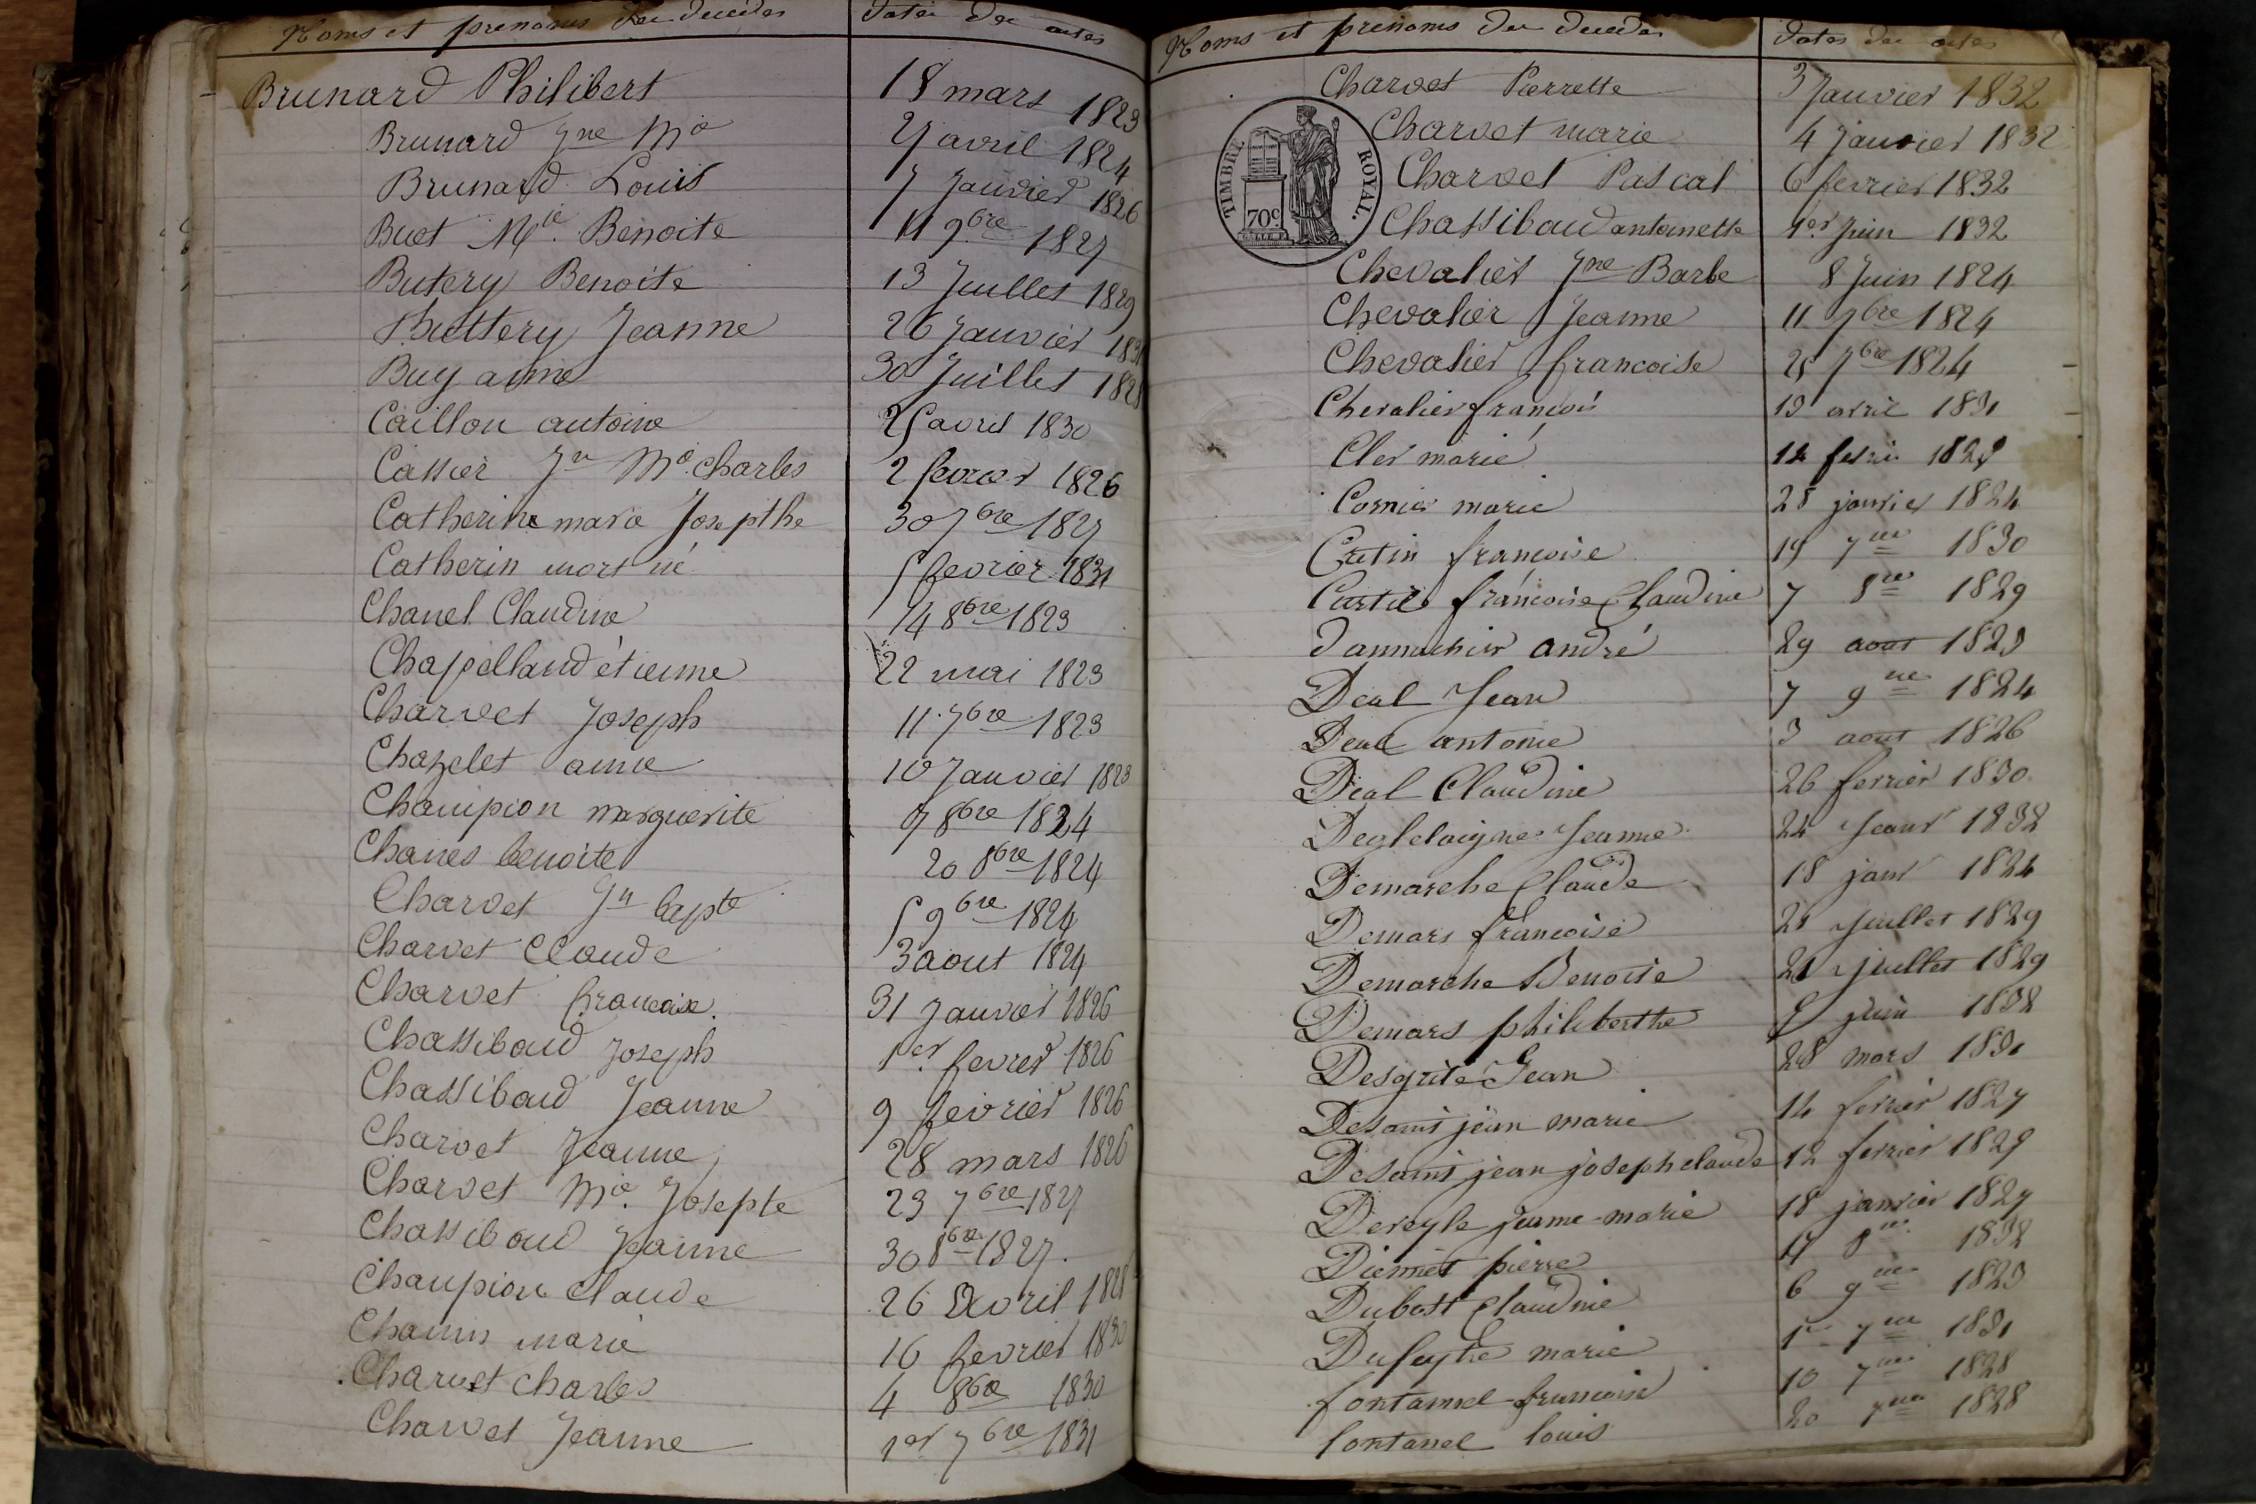 Noms et prenoms des decedes dates des actes
Brunard Philibert 18 mars 1823
Brunard Jne Mie 27 avril 1824
Brunard Louis 7 Janvier 1826
Buet Mie Benoite 11 9bre 1827
Butery Benoite 13 Juillet 1829
Buttery Jeanne 26 Janvier
Buy anne 30 Juillet 1828
Caillou antoine 25 avril 1830
Cassier Jn Mie Charles 2 fevrier 1826
Catherin marie Josepthe 30 7bre 1827
Catherin mort né 5 fevrier 1831
Chanel Claudine 14 8bre 1823
Chapelland étienne 22 mai 1823
Charvet Joseph 11 7bre 1823
Chazelet anne 10 Janvier 1823
Champion marguerite 9 8bre 1824
Chanes benoite 20 8bre 1824
Charvet Jn bapte 5 9bre 1824
Charvet Claude 3 aout 1824
Charvet francoise 31 Janvier 1826
Chassiboud Joseph 1er fevrier 1826
Chassiboud Jeanne 9 fevrier 1826
Charvet Jeanne 28 mars 1826
Charvet Mie Josepte 23 7bre 1827
Chassiboud Jeanne 30 8bre 1827
Champion Claude 26 avril 1828
marie 16 fevrier 1830
Charvet charles 4 8bre 1830
Charvet Jeanne 1er 7bre 1831
Noms et prenoms des decedes dates des actes
Charvet Pierrette 3 Janvier 1832
Charvet marie 4 Janvier 1832
Charvet Pascal 6 fevrier 1832
Chassiboud antoinette 1er Juin 1832
TIMBRE ROYAL.
70c
Chevalier Jne Barbe 8 Juin 1824
Chevalier Jeanne 11 7bre 1824
Chevalier francoise 25 7bre 1824
Chevalier françois 19 avril 1831
Cler marie 1829
Cornier marie 28 janvier 1824
Cretin francoise 19 7bre 1830
Curtil francoise Claudine 7 8bre 1829
andré 29 aout 1823
Deal Jean 7 9bre 1824
Deal antoine 3 aout 1826
Deal Claudine 26 fevrier 1830
Jeanne 24 Janvr 1832
Demarche Claude 18 janr 1824
Demars francoise 21 Juillet 1829
Demarche Benoite 21 Juillet 1829
Demars philiberthe juin 1832
Desgrite Jean 28 mars 1831
Desaint jean marie 14 fevrier 1827
Desaint jean joseph claude 12 fevrier 1829
jeanne-marie 18 janvier 1827
pierre 1832
Dubost Claudine 6 9bre 1823
marie 1er 7bre 1831
fontanel francoise 10 7bre 1828
fontanel louis 20 7bre 1828